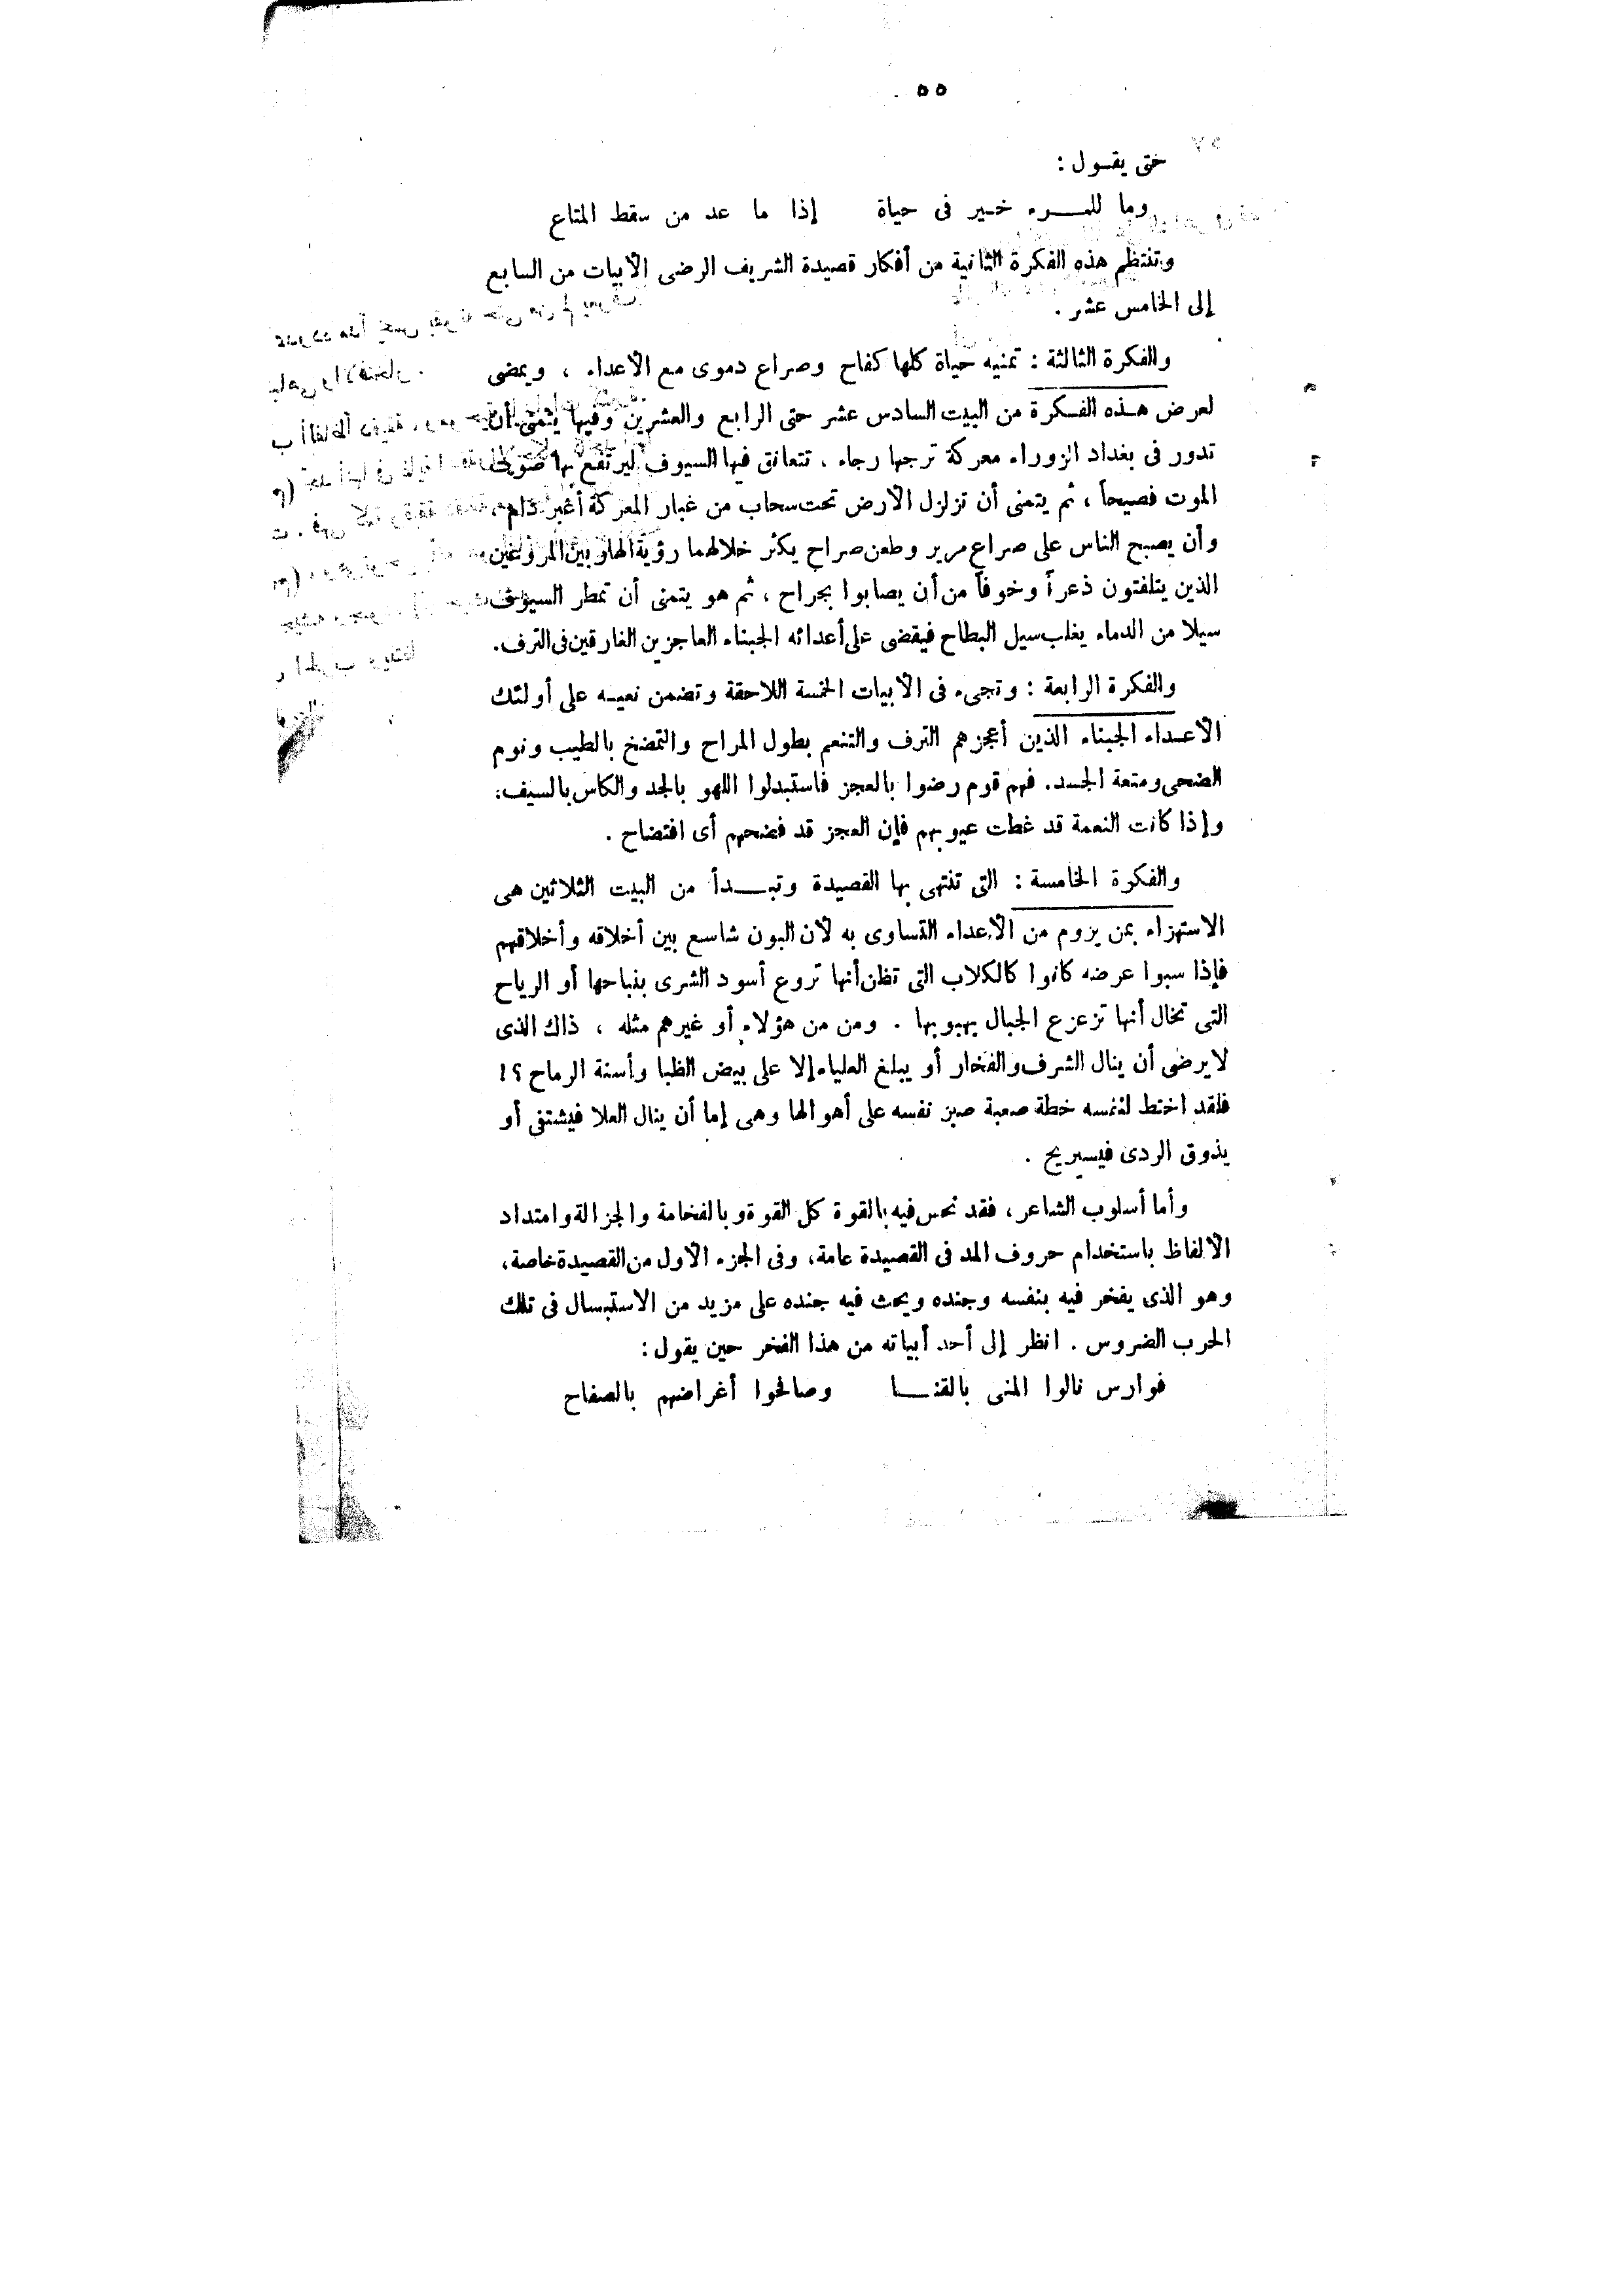 ٥٥
حتى يقول :
وما للمرء خير فى حياة إذا ما عد من سقط المتاع
وتنتظم هذه الفكرة الثانية من أفكار قصيدة الشريف الرضى الأبيات من السابع
إلى الخامس عشر .
والفكرة الثالثة : تمنيه حياة كلها كفاح وصراع دموى مع الأعداء ، ويمضى
لعرض هذه الفكرة من البيت السادس عشر حتى الرابع والعشرين وفيها يتمنى أن
تدور فى بغداد الزوراء معركة ترجها رجاء ، تتعانق فيها السيوف ليرتفع بها صوت
الموت فصيحاً ، ثم يتمنى أن تزلزل الأرض تحت سحاب من غبار المعركة أغبر دام ،
وأن يصبح الناس على صراع مرير وطعن صراح يكثر خلالهما رؤية الهاربين المروعين
الذين يتلفتون ذعراً وخوفاً من أن يصابوا بجراح ، ثم هو يتمنى أن تمطر السيوف
سيلا من الدماء يغلب سيل البطاح فيقضى على أعدائه الجبناء العاجزين الغارقين فى الترف .
والفكرة الرابعة : وتجىء فى الأبيات الخمسة اللاحقة وتضمن نعيه على أولئك
الأعداء الجبناء الذين أعجزهم الترف والتنعم بطول المراح والتمضخ بالطيب ونوم
الضحى ومتعة الجسد . فهم قوم رضوا بالعجز فاستبدلوا اللهو بالجد والكاس بالسيف :
وإذا كانت النعمة قد غطت عيوبهم فإن العجز قد فضحهم أى افتضاح .
والفكرة الخامسة : التى تنتهى بها القصيدة وتبدأ من البيت الثلاثين هى
الاستهزاء بمن يروم من الأعداء التساوى به لأن البون شاسع بين أخلاقه وأخلاقهم
فإذا سبوا عرضه كانوا كالكلاب التى تظن أنها تروع أسود الشرى بنباحها أو الرياح
التى تخال أنها تزعزع الجبال بهبوبها . ومن من هؤلاء أو غيرهم مثله ، ذاك الذى
لا يرضى أن ينال الشرف والفخار أو يبلغ العلياء إلا على بيض الظبا وأسنة الرماح ؟!
فلقد اختط لنفسه خطة صعبة صبر نفسه على أهوالها وهى إما أن ينال العلا فيشتفى أو
يذوق الردى فيسيريح .
وأما أسلوب الشاعر ، فقد نحس فيه بالقوة كل القوة وبالفخامة والجزالة وامتداد
الألفاظ باستخدام حروف المد فى القصيدة عامة ، وفى الجزء الأول من القصيدة خاصة ،
وهو الذى يفخر فيه بنفسه وجنده ويحث فيه جنده على مزيد من الاستبسال فى تلك
الحرب الضروس . انظر إلى أحد أبياته من هذا الفخر حين يقول :
فوارس نالوا المنى بالقنا وصافحوا أغراضهم بالصفاح